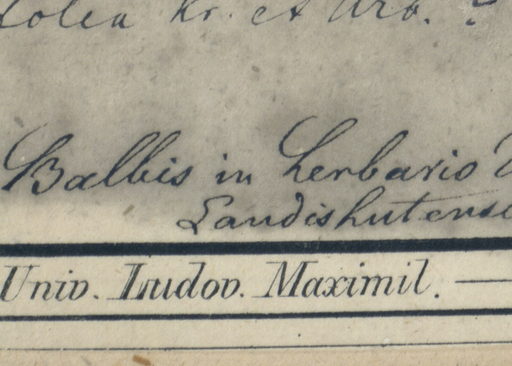 Kr. et Urb. ?
Balbis in herbario
Landishutense
Univ. Ludov. Maximil.